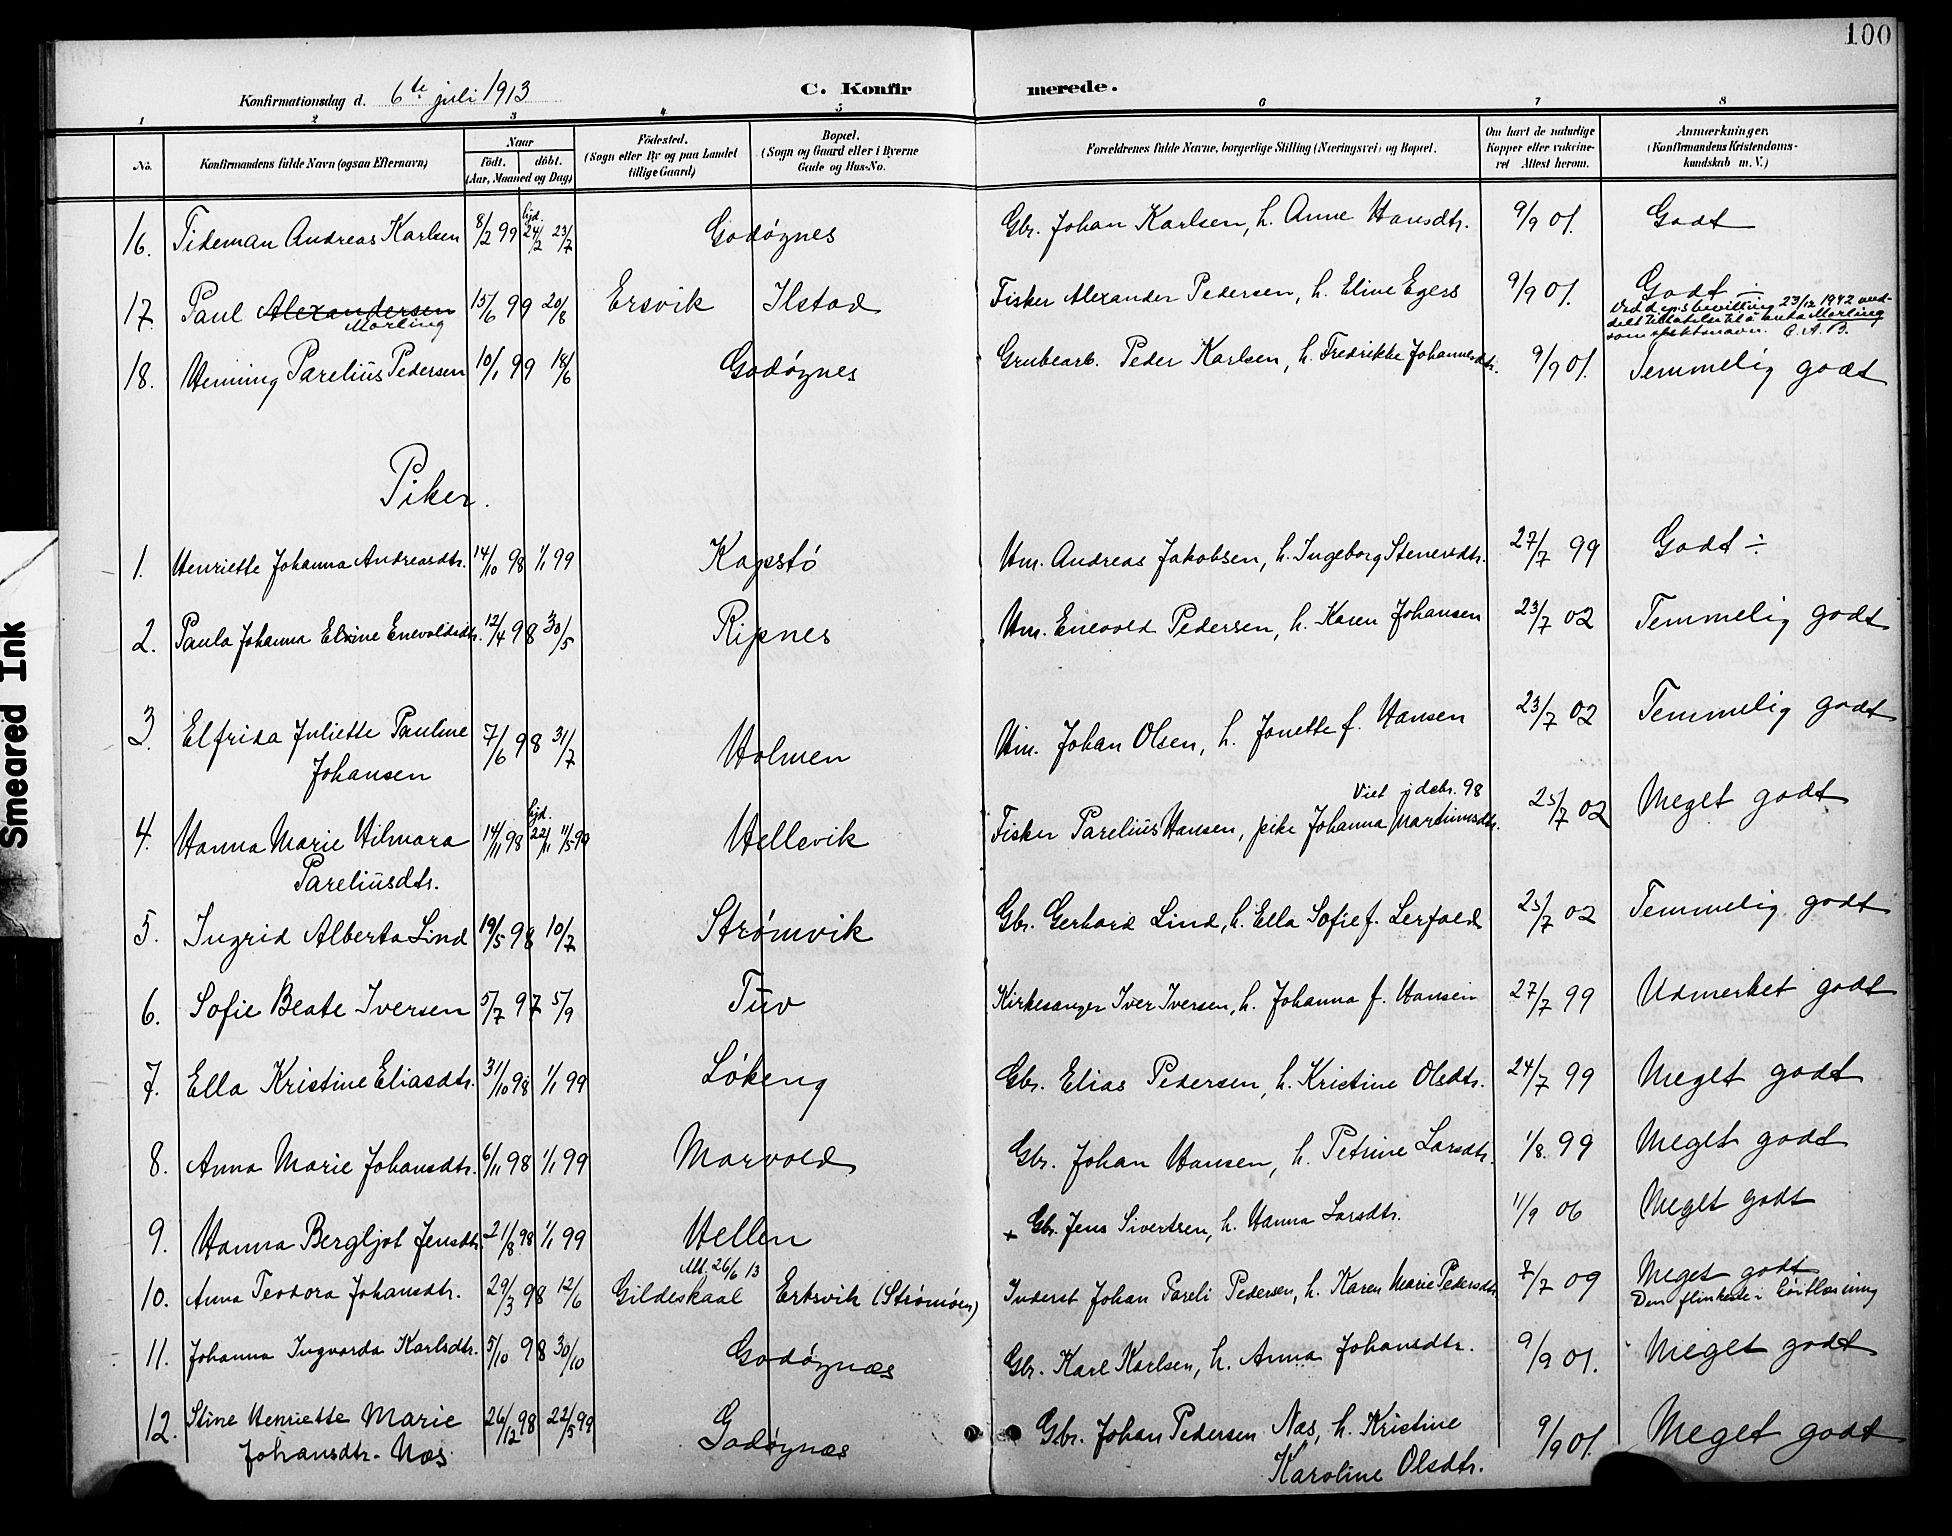 100
Konfirmationsdag d. 6te juli 1913 C. Konfirmerede.
1 2 3 4 5 6 7 8
No. Konfirmandens fulde Navn (ogsaa Efternavn) Naar födt. döbt. (Aar, Maaned og Dag) Födested. (Sogn eller By og paa Landet tillige Gaard) Bopæl. (Sogn og Gaard eller i Byerne Gade og Hus-No. Forældrenes fulde Navne, borgerlige Stilling (Næringsvei) og Bopæl. Om havt de naturlige Kopper eller vaccineret Attest herom. Anmærkninger. (Konfirmandens Kristendomskundskab m. V.)
16. Tideman Andreas Karlsen 8/2 99 hjd. 24/2 23/7 Godøynes Gbr. Johan Karlsen, h. Anne Hansdtr. 9/9 01. Godt
17. Paul Alexandersen Mørling 15/6 99 20/8 Ersvik Ilstad Fisker Alexander Pedersen, h. Eline Egers 9/9 01. Godt ÷
23/12 1942 Mørling
18. Henning Parelius Pedersen 10/1 99 18/6 Godøynes Grubearb. Peder Karlsen, h. Fredrikke Johannesdtr. 9/9 01. Temmelig godt
Piker.
1. Henriette Johanna Andreasdtr. 14/10 98 1/1 99 Kapstø Hm. Andreas Jakobsen, h. Ingeborg Stenersdtr. 27/7 99 Godt ÷
2. Paula Johanna Elvine Enevoldsdtr. 12/4 98 30/5 Ripnes Hm. Enevold Pedersen, h. Karen Johansen 23/7 02 Temmelig godt
3. Elfrida Juliette Pauline Johansen 7/6 98 31/7 Holmen Hm. Johan Olsen, h. Jonette f. Hansen 23/7 02 Temmelig godt
4. Hanna Marie Hilmara Pareliusdtr. 14/11 98 hjd. 22/11 11/5 99 Hellevik Fisker Parelius Hansen, pike Johanna Martinusdtr. Viet 98 25/7 02 Meget godt
5. Ingrid Alberta Lind 19/5 98 10/7 Strømvik Gbr. Gerhard Lind, h. Ella Sofie f. Lerfald 25/7 02 Temmelig godt
6. Sofie Beate Iversen 5/7 97 5/9 Tuv Kirkesanger Iver Iversen, h. Johanna f. Hansen 27/7 99 Udmerket godt
7. Ella Kristine Eliasdtr. 31/10 98 1/1 99 Løkeng Gbr. Elias Pedersen, h. Kristine Olsdtr. 24/7 99 Meget godt
8. Anna Marie Johansdtr. 6/11 98 1/1 99 Marvold Gbr. Johan Hansen, h. Petrine Larsdtr. 1/8. 99 Meget godt
9. Hanna Bergljot Jensdtr. 21/8 98 1/1 99 Hellen + Gbr. Jens Sivertsen, h. Hanna Larsdtr. 11/9 06 Meget godt
10. Anna Teodora Johansdtr. 29/3 98 12/6 Att. 26/6 13 Gildeskaal Ertsvik (Strømøen) Inderst Johan Pareli Pedersen, h. Karen Marie Pedersdtr 7/7 09 Meget godt
Den flinkeste i
11. Johanna Ingvarda Karlsdtr. 5/10 98 30/10 Godøynæs Gbr. Karl Karlsen, h. Anna Johansdtr. 9/9 01. Meget godt
12. Stine Henriette Marie Johansdtr. Næs. 26/12 98 22/5 99 Godøynæs Gbr. Johan Pedersen Næs, h. Kristine Karoline Olsdtr. 9/9 01. Meget godt
Smeared Ink